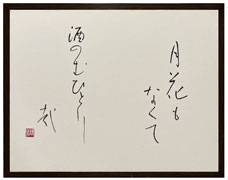 月花も
なくて
酒のむひとり
哉